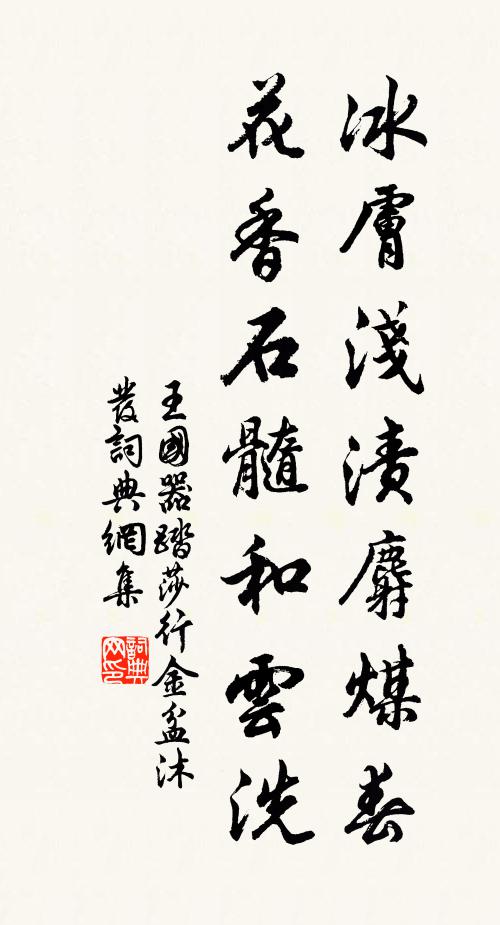 冰膚淺漬麝煤春
花香石髓和雲洗
王國器踏莎行金盆沐
發詞典網集
詞典網印